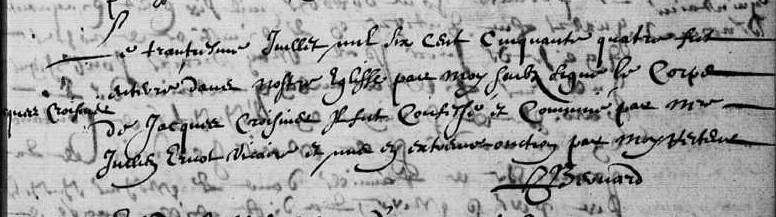 Le trantiesme Juillet mil six cent cinquante quatre fut
enterré dans nostre Eglisse par moy soubz signé le Corps
Jacques Croisnier
de Jacques Croisnier Il fut Confessé et Commnié par Mre
Julien Ernot vicaire et mis en extreme onction par moy
Besnard